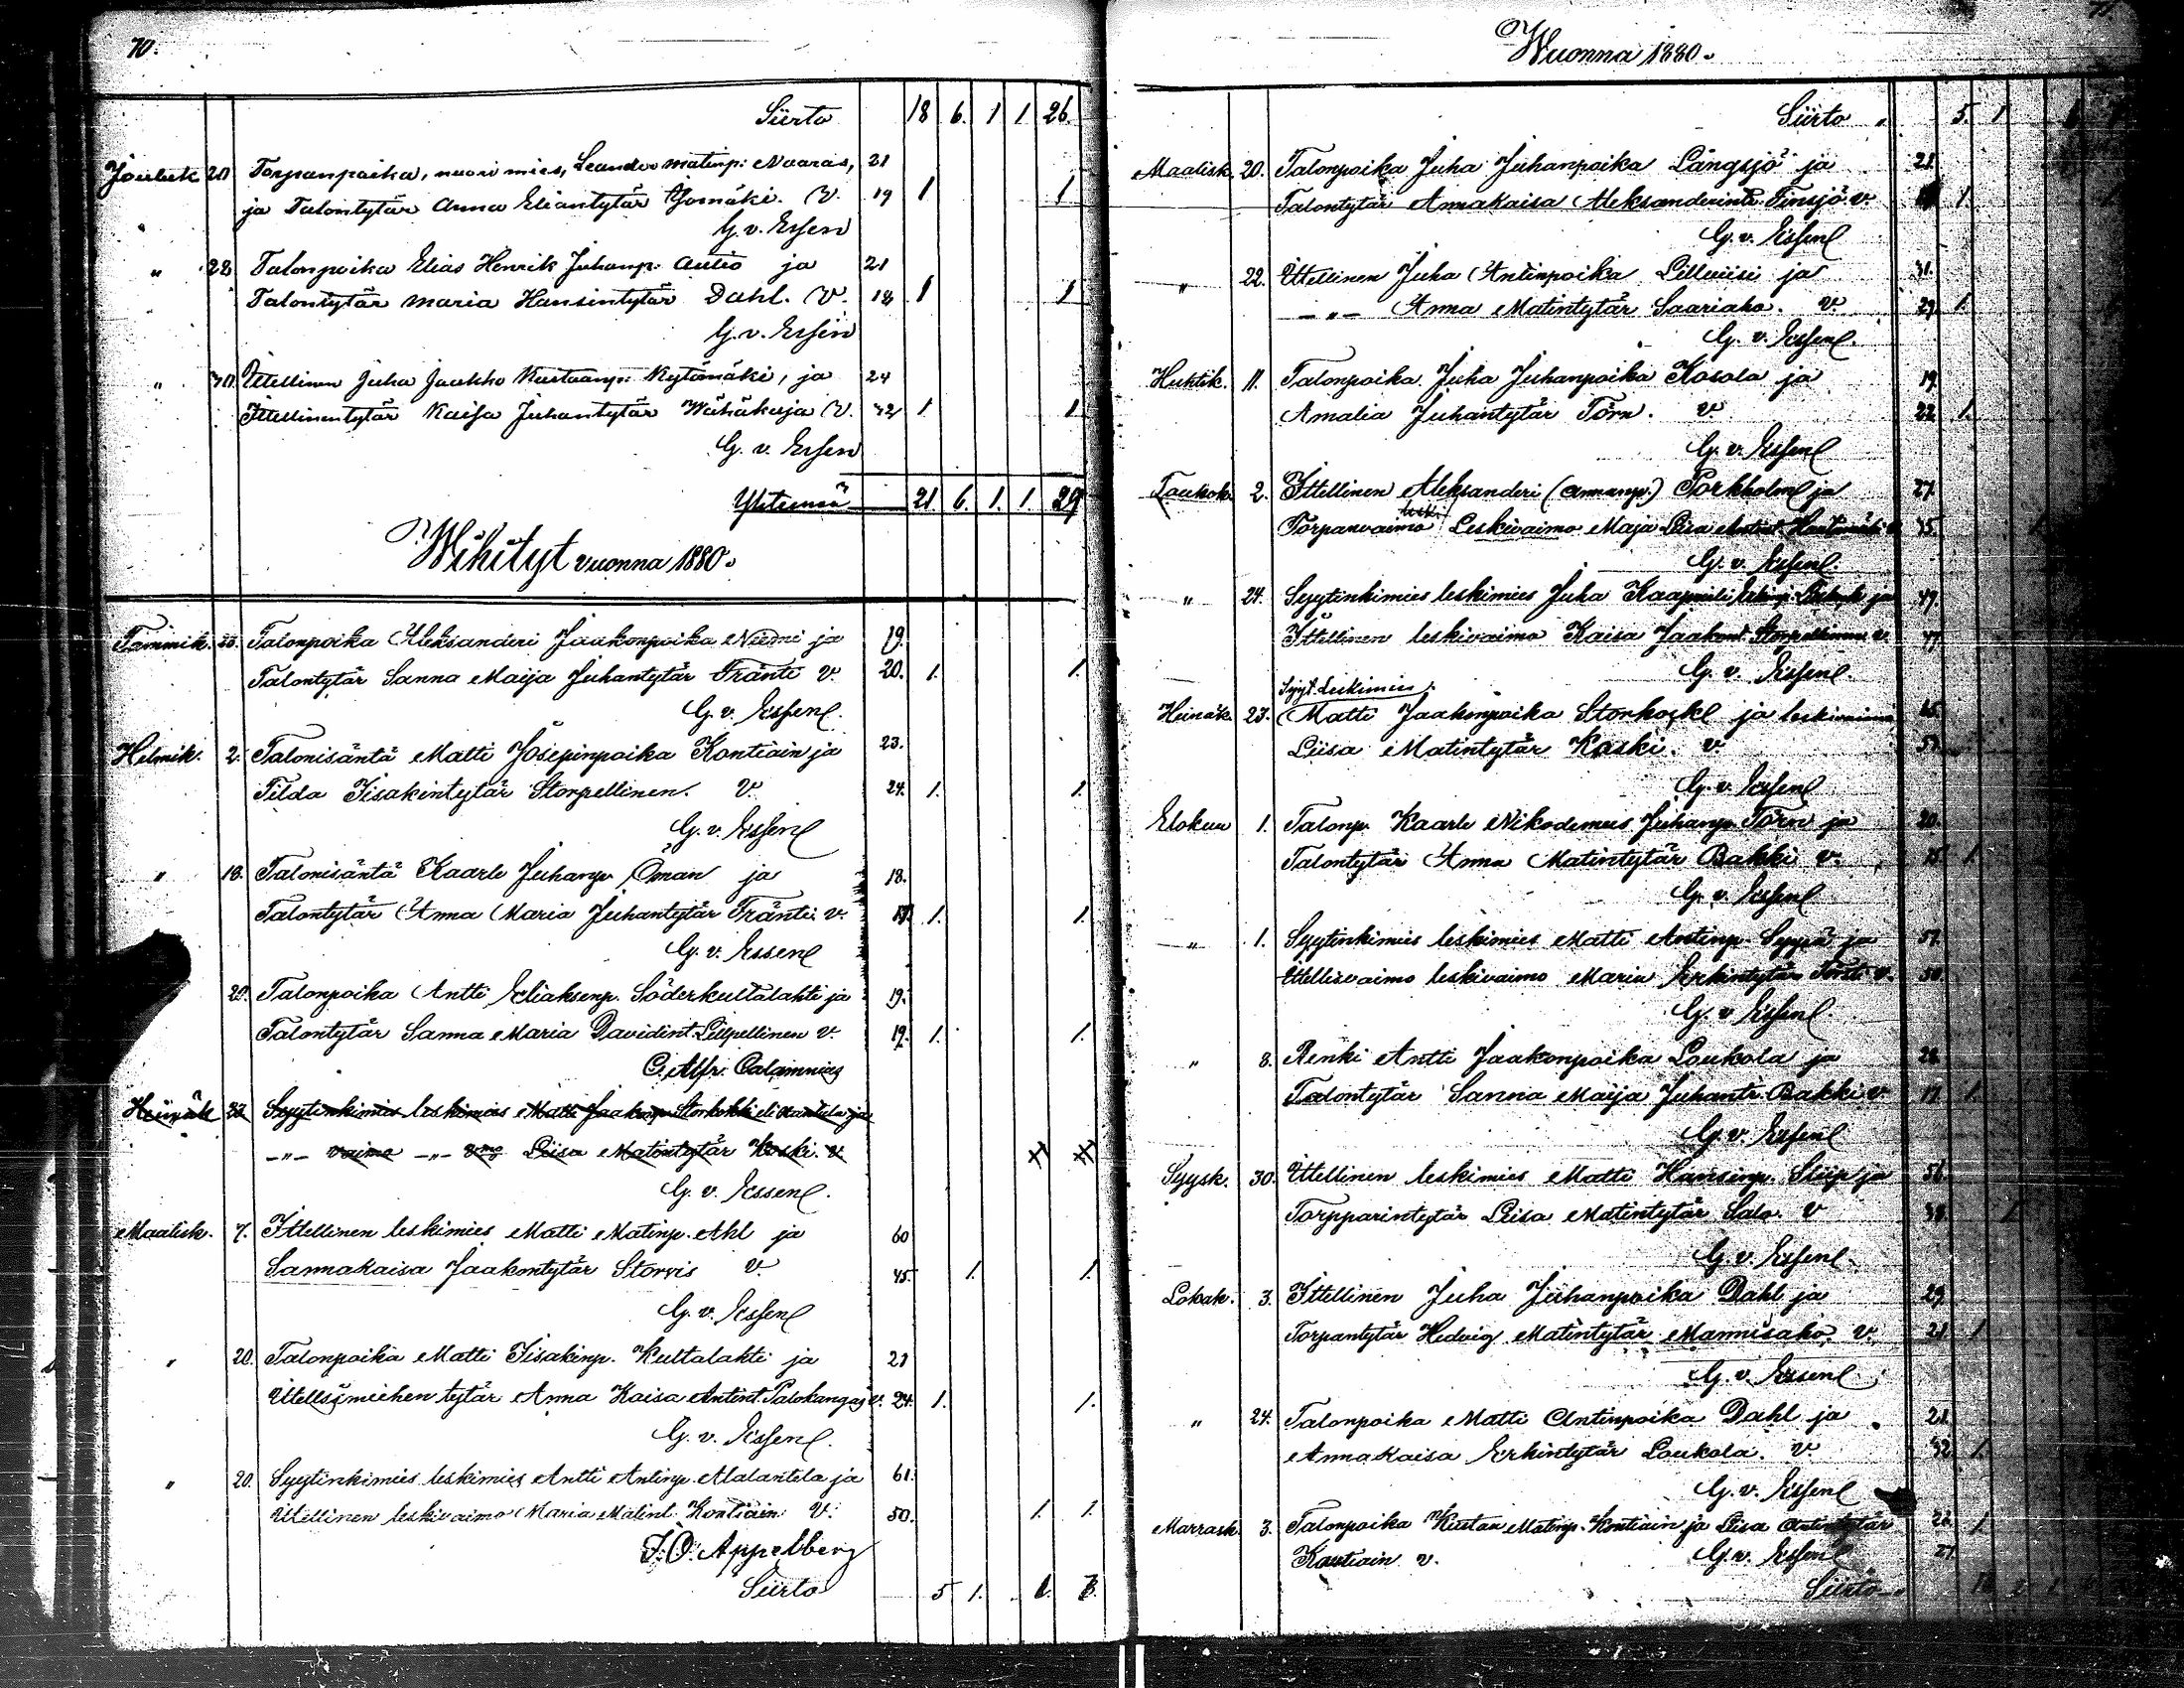 70.
Siirto 18 6. 1 1. 26.
Jouluk 20 Torpanpoika, nuori mies, Leander Matinp: Naaras, 21
ja Talontytär Anna Eliantytär Gosmäki. V. 19 1 1
G. v. Essen
" 22 Talonpoika Elias Henrik Juhanp: Autio ja 21
Talontytär Maria Hansintytär Dahl. V. 18 1 1
G. v. Essen
" 30 Itellinen Juha Jaakko Kustaanp: Kytömäki, ja 24
Itellinentytär Kaisa Juhantytär Wähäkuja V. 32 1. 1
G. v. Essen
Yhteensä 21 6. 1. 1. 29
Wihityt vuonna 1880.
Tammik. Talonpoika Aleksanderi Jaakonpoika Niemi ja 19.
Talontytär Sanna Maija Juhantytär Fränti v. 20. 1. 1.
G. v. Essen.
Helmik. 2. Talonisäntä Matti Josepinpoika Kontiain ja 23.
Tilda Iisakintytär Storpellinen. V. 24. 1. 1.
G. v. Essen
" 18. Talonisäntä Kaarle Juhanp. Öman ja 18.
Talontytär Anna Maria Juhantytär Fränti v. 17 1. 1.
G. v. Essen
29. Talonpoika Antti Eliaksenp. Söderkultalahti ja 19.
Talontytär Sanna Maria Davidint. Lillpellinen v. 19. 1. 1.
C. Alfr. Calamnius
Heinäk 23 Syytinkimies leskimies Matti Jaakonp. Storkoski eli ja
-"- vaimo -"- Liisa Matintytär Koski. v.
G. v. Essen.
Maalisk. 7. Itellinen leskimies Matti Matinp. Ahl ja 60
Sannakaisa Jaakontytär Storvis V. 45. 1. 1.
G. v. Essen
" 20. Talonpoika Matti Iisakinp. Kultalahti ja 21
Itellismiehen tytär Anna Kaisa Antint. Palokangas v. 24. 1. 1.
G. v. Essen.
" 20. Syytinkimies leskimies Antti Antinp. Alalantela ja 61.
Itellinen leskivaimo Maria Matint. Kontiain V. 50. 1. 1.
J. O. Appelberg
Siirto 5 1. 1. 7.
71
Wuonna 1880.
Siirto " 5. 1
Maalisk. 20. Talonpoika Juha Juhanpoika Långsjö ja 21.
Talontytär Annakaisa Aleksanderint. Finsjö v. 1.
G. v. Essen
" 22. Itellinen Juha Antinpoika Lillviisi ja 31.
-"- Anna Matintytär Saariaho. v. 29. 1.
G. v. Essen.
Huhtik. 11. Talonpoika Juha Juhanpoika Kosola ja 19.
Amalia Juhantytär Törn. v. 22 1.
G. v. Essen
Toukok. 2. Itellinen Aleksanderi (Annanp.) Porkholm ja 27.
leski
Torpanvaimo Leskivaimo Maja Liisa 45.
G. v. Essen.
" 24. Syytinkimies leskimies Juha Kaapriel ja 49.
Itellinen leskivaimo Kaisa Jaakont. Storpellinen v. 47
G. v. Essen.
Syyt. Leskimies.
Heinäk. 23. Matti Jaakonpoika Storkoski ja leskivaimo 65.
Liisa Matintytär Koski. v. 51.
G. v. Essen
Elokuu 1. Talonp. Kaarle Nikodemus Juhanp. Törn ja 20.
Talontytär Anna Matintytär Bakki v. 1.
G. v. Essen
" 1. Syytinkimies leskimies Matti Antinp. Syyrä ja 51.
Itellisvaimo leskivaimo Maria Erkintytär v. 50.
G. v. Essen
" 8. Renki Antti Jaakonpoika Loukola ja
Talontytär Sanna Maija Juhant. Bakki v. 17 1.
G. v. Essen
Syysk. 30. Itellinen leskimies Matti Hansinp. Sliip ja 56.
Torpparintytär Liisa Matintytär Salo. v 1
G. v. Essen.
Lokak. 3. Itellinen Juha Juhanpoika Dahl ja 29
Torpantytär Hedvig Matintytär Mannisaho v. 21. 1
G. v. Essen.
" 24. Talonpoika Matti Antinpoika Dahl ja 21
Annakaisa Erkintytär Loukola. v. 32 1.
G. v. Essen
Marrask. 3. Talonpoika Kustaa Matinp. Kontiain ja Liisa Antintytär 22 1
Kontiain v. G. v. Essen 27
Siirto